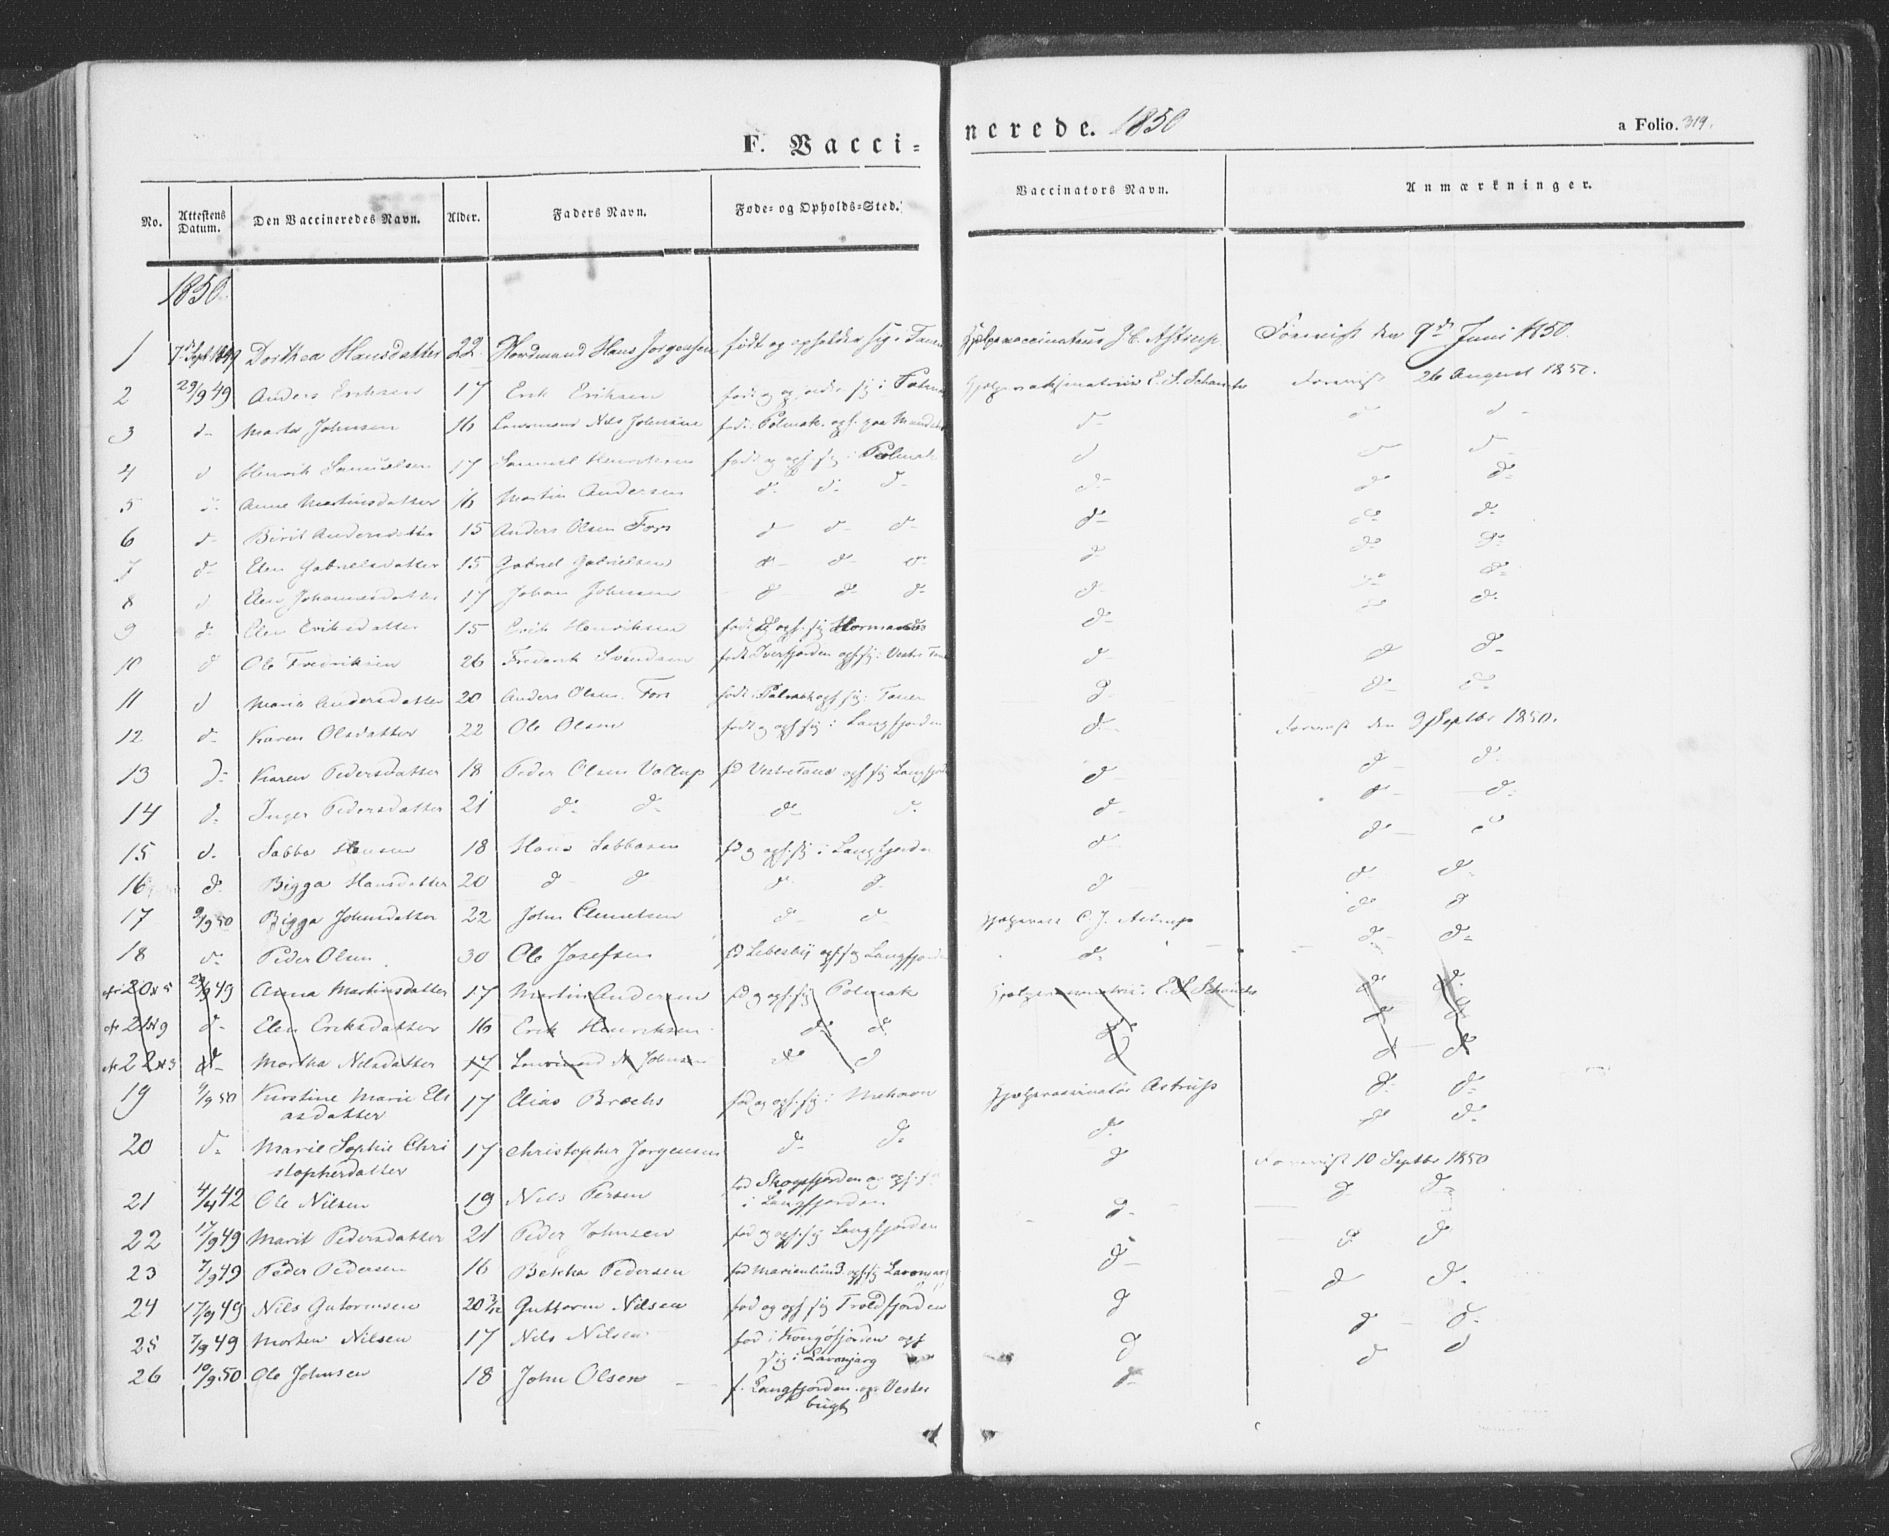 F. Vacci- nerede. 1850 a Folio. 319.
No. Attestens Datum. Den Vaccineredes Navn. Alder. Faders Navn. Føde- og Opholds-Sted. Vaccinators Navn. Anmærkninger.
1850
1 7 Sept 1849 Dorthea Hansdatter 22 Nordmand Hans Jørgensen født og opholder sig i Tanen Hjelpevaccinateur J C. Astrup. Foreviist den 9de Juni 1850.
2 29/9 49 Anders Eriksen 17 Erik Eriksen født og sig i Polmak E. S. Schanche Foreviist 26 August 1850.
3 d- Johnsen 16 Nils Johnsen født Polmak. oph. paa d- d d-
4 d Henrik Samuelsen 17 Samuel Henriksen født og oph sig i Polmak d d
5 d- Anne Martinsdatter 16 Martin Andersen d- d- d- d- d- d-
6 d- Birit Andersdatter 15 Anders Olsen Fors d d- d- d- d- d-
7 d- Elen Gabrielsdatter 15 Gabriel Gabrielsen d- d- d- d- d- d-
8 d Elen Johannesdatter 17 Johan Johnsen d d- d- d- d-
9 d- Elen Eriksdatter 15 Erik Henriksen født og oph. sig d- d-
10 d Ole Fredriksen 26 Frederik Svendsen født Iverfjorden oph. sig i Vestre Tanen d- d d-
11 d Maria Andersdatter 20 Anders Olsen Fors født i Polmak oph sig i Tanen d- d- d-
12 d- Karen Olsdatter 22 Ole Olsen født og oph sig i Langfjorden d- Foreviist den 9 Septbr 1850.
13 d- Karen Pedersdatter 18 Peder Olsen Vallup fd Vestretana oph sig Langfjord d d- d-
14 d- Inger Pedersdatter 21 d- d- d- d- d- d- d-
15 d. Sabba Hansen 18 Hans Sabbasen fd og oph. sig i Langfjorden d d- d
16 d- Bigga Hansdatter 20 d- d d- d- d d d-
17 9/9 50 Bigga Johnsdatter 22 John Clemetsen d- d Hjelpevacc C. J. Astrup d- d
18 d- Peder Olsen 30 Ole Josefsen fd Lebesby oph. sig Langfjorden d- d- d-
20 5 29/9 49 Anna Martinsdatter 17 Martin Andersen fd og oph sig i Polmak E. S. Schanche d- d-
21 9 d- Elen Eriksdatter 16 Erik Henriksen d- d- d d- d
22 3 d- Martha Nilsdatter 17 N Johnsen d- d d d d
19 9/9 50 Kirstine Marie Eli
asdatter 17 Elias Brochs fød og oph. sig i Mehavn Hjelpevaccinatør Astrup d- d-
20 d- Marie Sophie Chri
stopherdatter 17 Christopher Jørgensen d- d- d- d- d-
21 4/4 42 Ole Nilsen 19 Nils Persen fød Skogsfjorden og oph. sig
i Langfjorden d Foreviist 10 Septbr 1850
22 17/9 49 Marit Pedersdatter 21 Peder Johnsen fød og oph. sig Langfjorden d- d d-
23 7/9 49 Peder Pedersen 16 Bekka Pedersen fød Marienlund oph. sig Lavonjarg d- d d
24 17/9 49 Nils Gutormsen 20 3/12 Guttorm Nilsen fød og oph sig Troldfjorden d d d-
25 7/9 49 Morten Nilsen 17 Nils Nilsen fød i Kongsfjorden oph
sig i Lavonjarg d d- d-
26 10/9 50 Ole Johnsen 18 John Olsen f. Langfjorden op. Vester
bugt d- d d